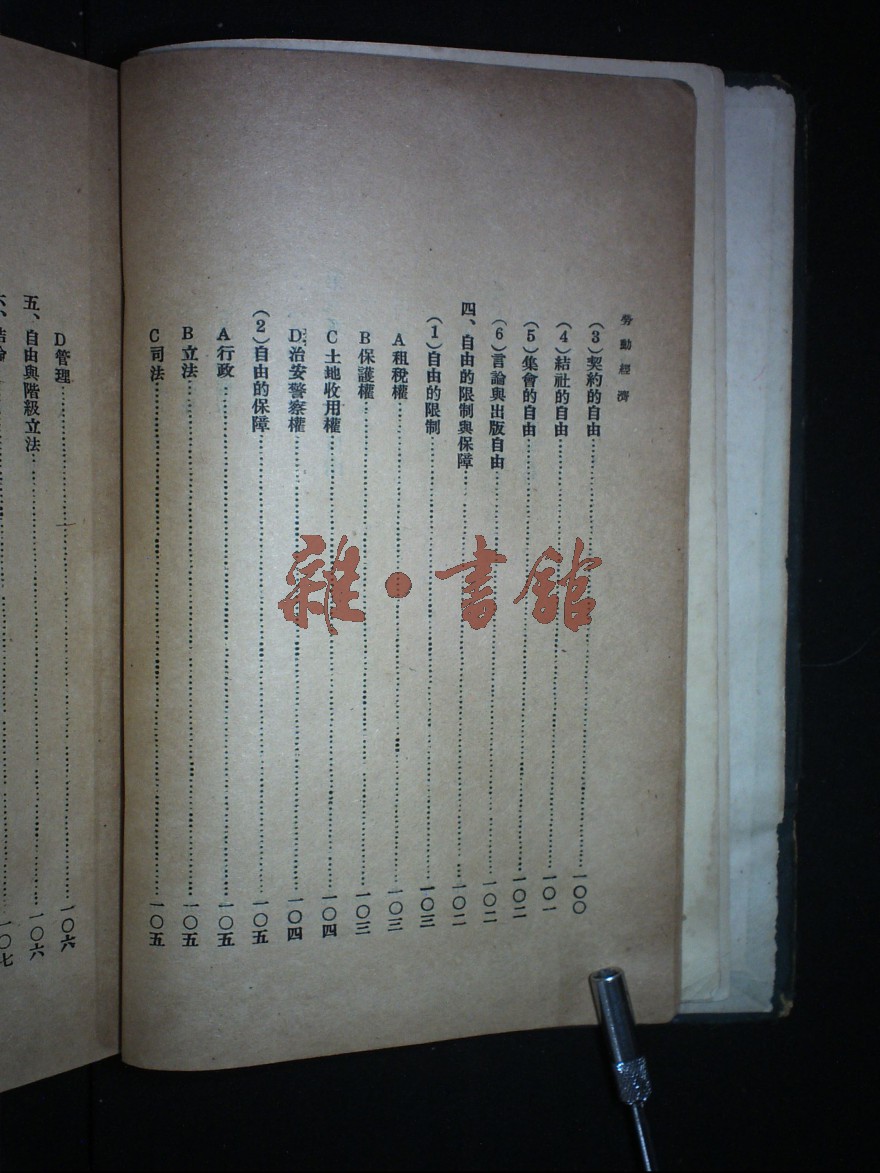 勞動經濟
(3)契約的自由……一〇〇
(4)結社的自由……一〇一
(5)集會的自由……一〇二
(6)言論與出版自由……一〇二
四、自由的限制與保障……一〇二
(1)自由的限制……一〇三
A租稅權……一〇三
B保護權……一〇三
C土地收用權……一〇四
D治安警察權……一〇四
(2)自由的保障……一〇五
A行政……一〇五
B立法……一〇五
C司法……一〇五
D管理……一〇六
五、自由與階級立法……一〇六
六、結論……一〇七
雜·書館